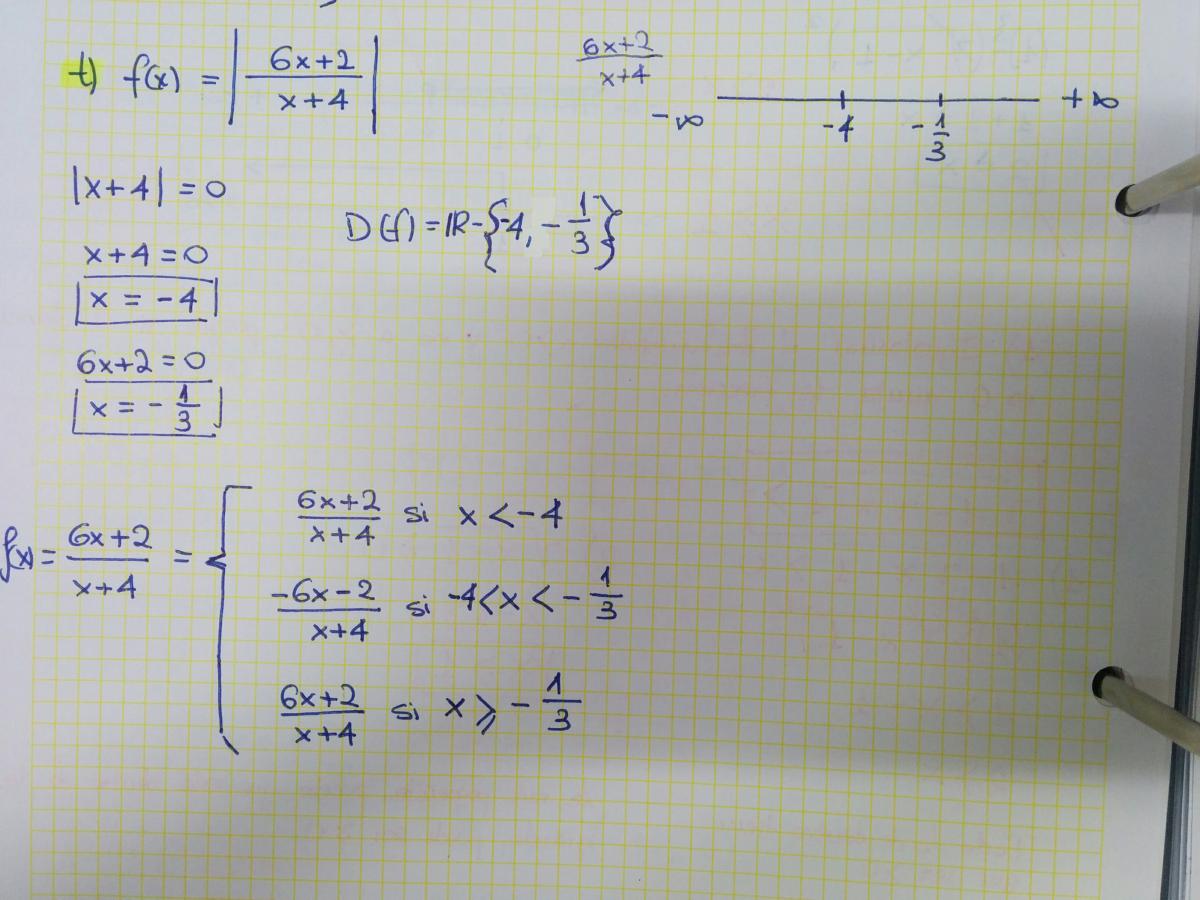 t) f(x) = | (6x+2)/(x+4) |
(6x+2)/(x+4)
-∞ -4 -1/3 +∞
|x+4| = 0
D(f) = IR - {-4, -1/3}
x+4 = 0
x = -4
6x+2 = 0
x = -1/3
f(x) = (6x+2)/(x+4) = {
(6x+2)/(x+4) si x < -4
(-6x-2)/(x+4) si -4 < x < -1/3
(6x+2)/(x+4) si x ⩾ -1/3